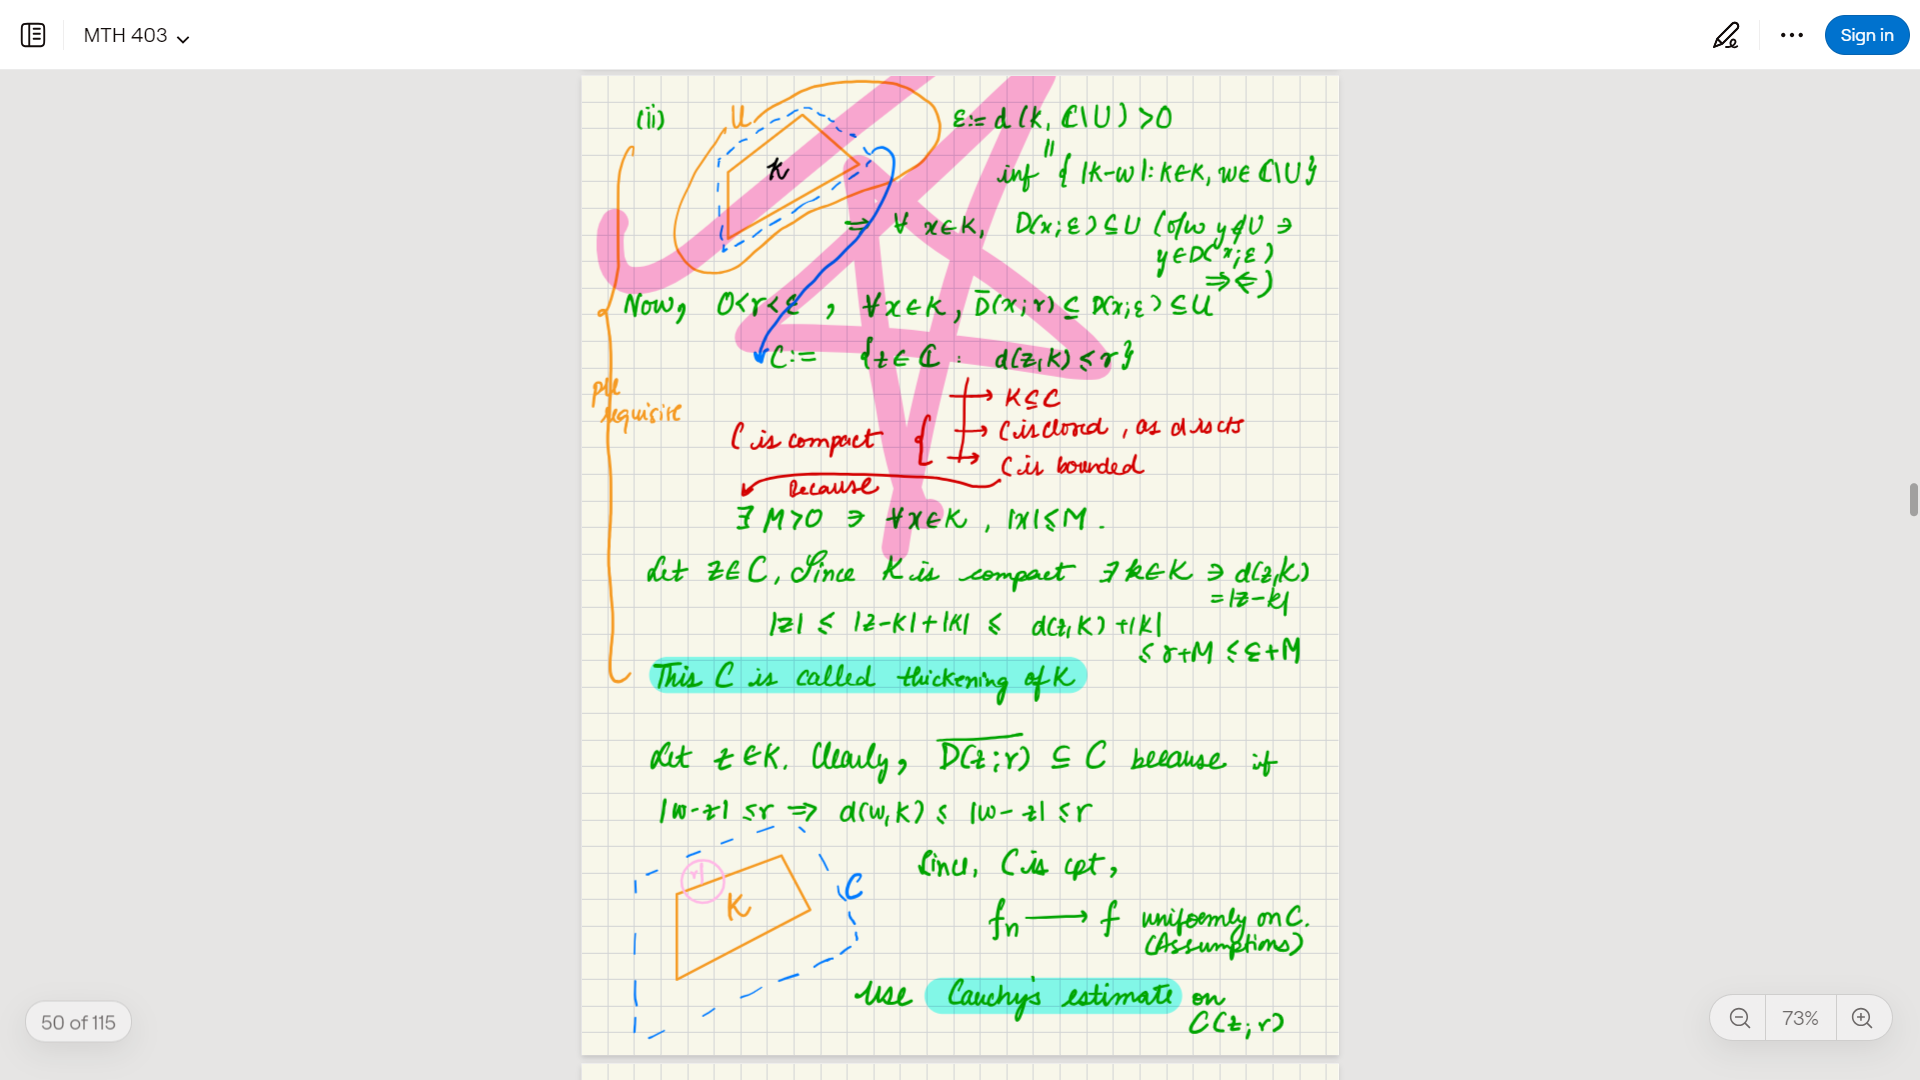 MTH 403
Sign in
(ii)
U
K
ε:= d(K, ℂ\U) >0
||
inf { |k-w| : k∈K, w∈ ℂ\U }
⇒ ∀ x∈K, D(x;ε) ⊆ U (o/w y∉U ∋
y∈D(x;ε)
⇒⇐)
Now, 0<r<ε , ∀x∈K, D̅(x;r) ⊆ D(x;ε) ⊆ U
C := {z∈ ℂ : d(z,K) ≤ r}
pre
requisite
→ K⊆C
C is compact { → C is closed, as d is cts
→ C is bounded
because
∃ M>0 ∋ ∀x∈K , |x| ≤ M .
Let z∈C, Since K is compact ∃ k∈K ∋ d(z,K)
= |z-k|
|z| ≤ |z-k|+|k| ≤ d(z,K) +|k|
≤ r+M ≤ ε+M
This C is called thickening of K
Let z∈K. Clearly, D̅(z;r) ⊆ C because if
|w-z| ≤r ⇒ d(w,K) ≤ |w-z| ≤ r
r
K
C
Since, C is cpt,
fn → f uniformly on C.
(Assumptions)
Use Cauchy's estimate on
C(z;r)
50 of 115
73%